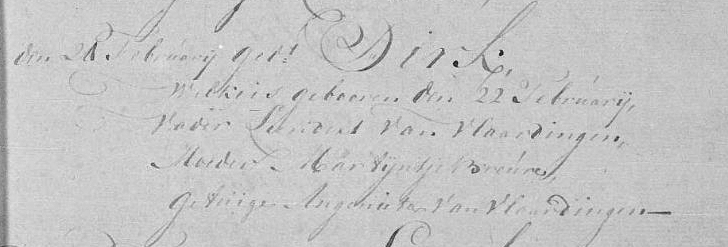 den 28 Februarij gedt Dirk,
Welk is gebooren den 22 Februarij,
Vader Leendert Van Vlaardingen,
Moeder Martijntje Breure,
Getuige Van Vlaardingen